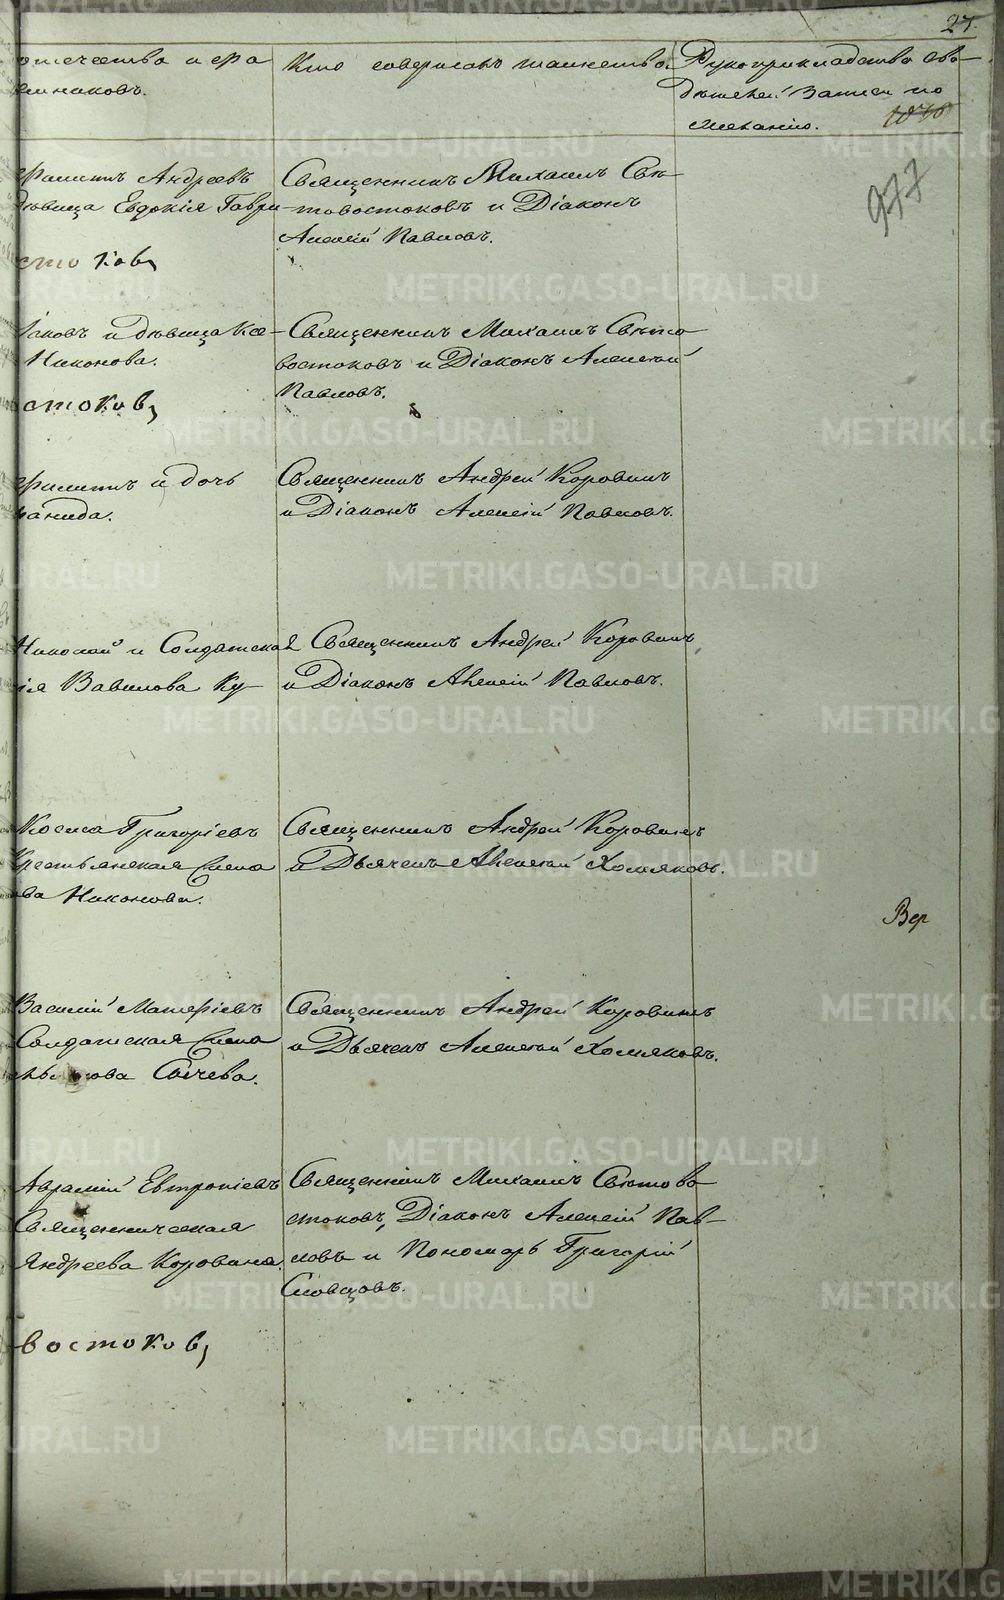 27.
отечество и фа
Кто совершалъ таинство.
Рукоприкладство сви
дѣтелей записи по
желанію.
977
Андреевъ
дѣвица Евдокія Гаври
Священникъ Михаилъ Свѣ-
товостоковъ и Діаконъ
Алексій Павловъ.
стоковъ
Іаковъ и дѣвица Ксе-
Никонова.
Священникъ Михаилъ Свѣто
востоковъ и Діаконъ Алексѣй
Павловъ.
остоковъ
и дочь
Священникъ Андрей Коровинъ
и Діаконъ Алексій Павловъ.
Николай и Солдатская
ія Вавилова Ку-
Священникъ Андрей Коровинъ
и Діаконъ Алексій Павловъ.
Косма Григоріевъ
Крестьянская
ва Никонова.
Священникъ Андрей Коровинъ
и Дьячекъ Алексѣй Хомяковъ.
Вер
Василій
Солдатская
ова Сычева.
Священникъ Андрей Коровинъ
и Дьячекъ Алексѣй Хомяковъ.
Аврамій Евтропіевъ
Священническая
Андреева Коровина.
Священникъ Михаилъ Свѣтово
стоковъ, Діаконъ Алексій Пав-
ловъ и Пономарь Григорій
Словцовъ.
востоковъ
METRIKI.GASO-URAL.RU